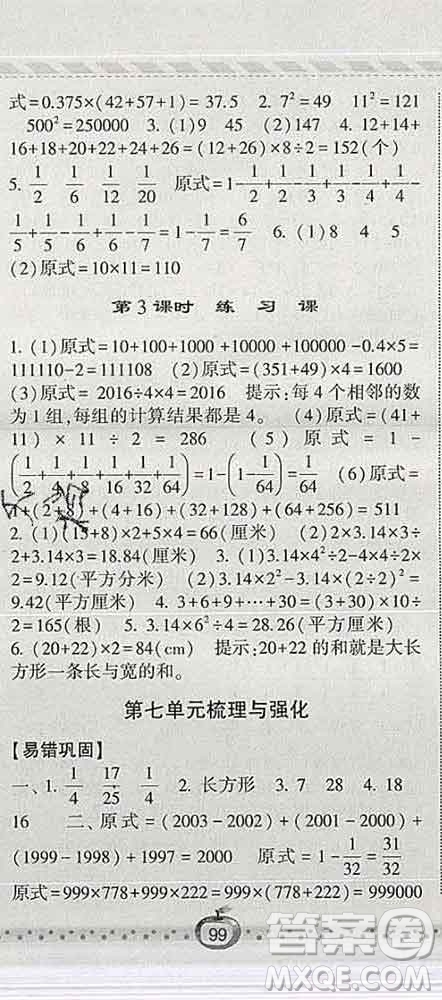 式=0.375×(42+57+1)=37.5　2. 7²=49　11²=121
500²=250000　3. (1)9　45　(2)147　4. 12+14+
16+18+20+22+24+26=(12+26)×8÷2=152(个)
5. 1/2　1/6　1/12　1/20　原式=1-1/2+1/2-1/3+1/3-1/4+1/4-
1/5+1/5-1/6+1/6-1/7=1-1/7=6/7　6. (1)8　4　5
(2)原式=10×11=110
第3课时　练　习　课
1. (1)原式=10+100+1000+10000+100000-0.4×5=
111110-2=111108　(2)原式=(351+49)×4=1600
(3)原式=2016÷4×4=2016　提示:每4个相邻的数
为1组,每组的计算结果都是4。　(4)原式=(41+
11)×11÷2=286　(5)原式=1-
(1/2+1/4+1/8+1/16+1/32+1/64)=1-(1-1/64)=1/64　(6)原式=
1+(2+8)+(4+16)+(32+128)+(64+256)=511
2. (1)(15+8)×2+5×4=66(厘米)　(2)2×3.14×3÷
2+3.14×3=18.84(厘米)　3. (1)3.14×4²÷2-4×4÷2×
2=9.12(平方分米)　(2)3.14×2²-3.14×(2÷2)²=
9.42(平方厘米)　4. 3+6+9+…+30=(3+30)×10÷
2=165(根)　5. 3.14×6²÷4=28.26(平方厘米)
6. (20+22)×2=84(cm)　提示:20+22的和就是大长
方形一条长与宽的和。
第七单元梳理与强化
【易错巩固】
一、1. 1/4　17/25　1/4　2. 长方形　3. 7　28　4. 18
16　二、原式=(2003-2002)+(2001-2000)+
(1999-1998)+1997=2000　原式=1-1/32=31/32
原式=999×778+999×222=999×(778+222)=999000
99
答案圈
MXQE.COM